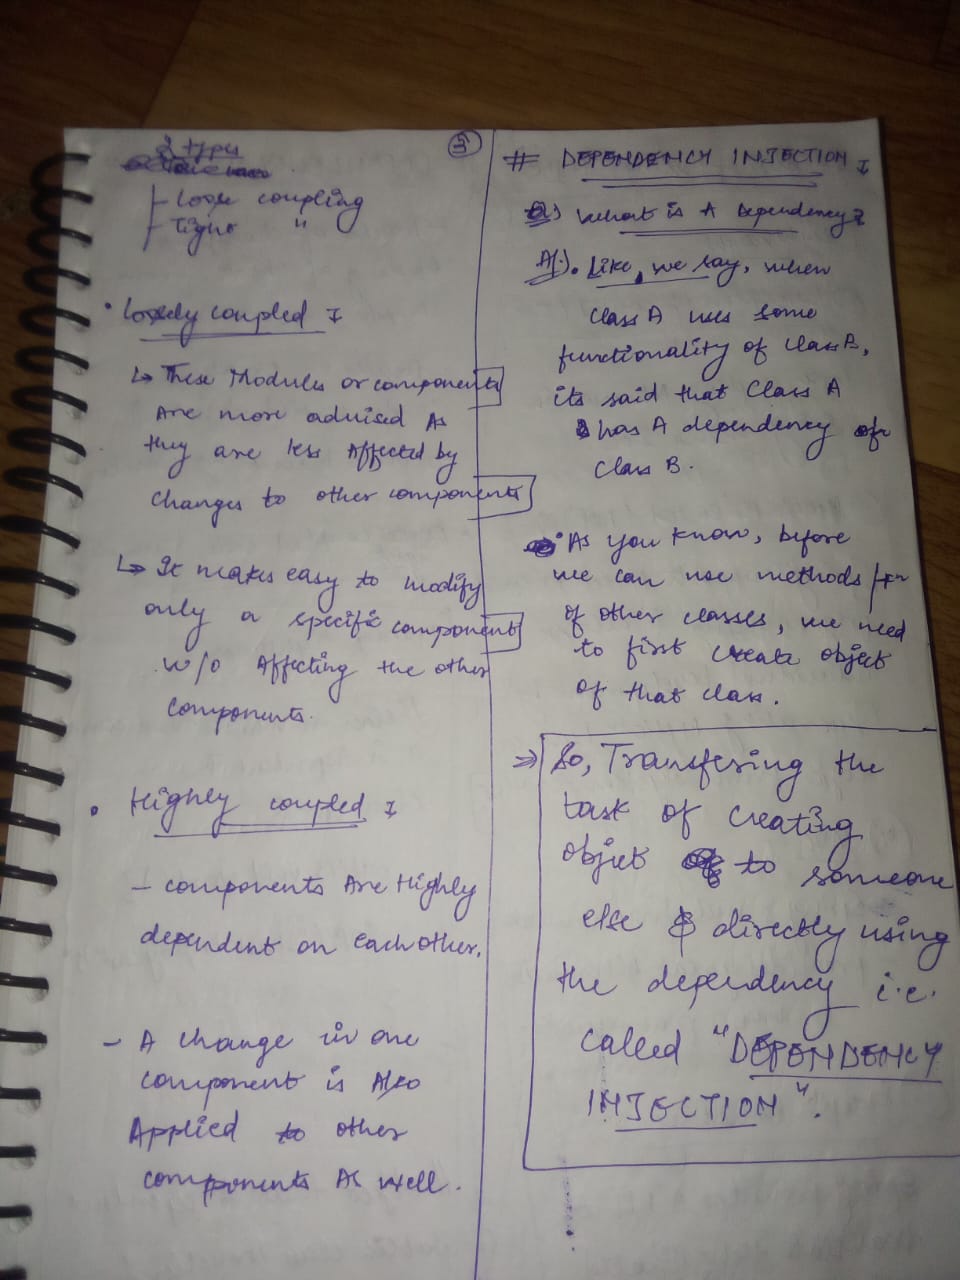 2 types
Loose coupling
Tight "
• Loosely coupled
↳ These Modules or components
Are more advised As
they are less Affected by
changes to other components
↳ It makes easy to modify
only a specific component
w/o Affecting the other
components.
• Highly coupled
- components Are Highly
dependent on each other.
- A change in one
component is Also
Applied to other
components As well.
3
# DEPENDENCY INJECTION
Q) What is A Dependency?
A). Like, we say, when
Class A uses some
functionality of Class B,
its said that Class A
has A dependency of
Class B.
• As you know, before
we can use methods/fn
of other classes, we need
to first create object
of that class.
⇒ So, Transfering the
task of creating
object to someone
else & directly using
the dependency i.e.
called "DEPENDENCY
INJECTION".